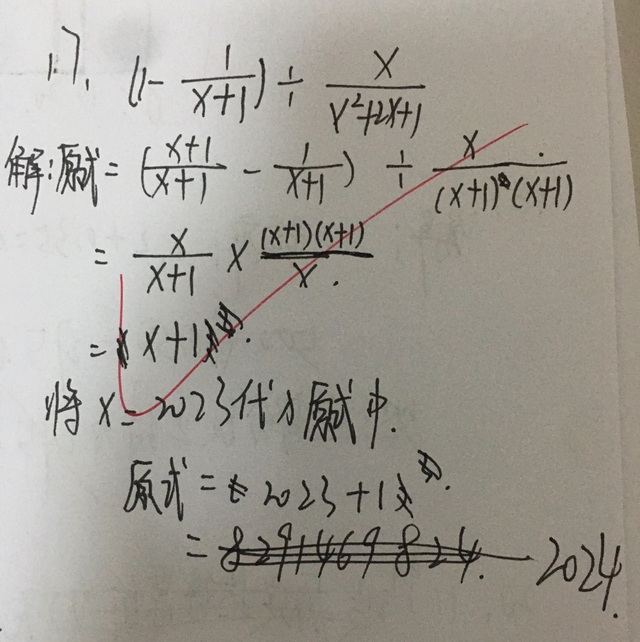 17. (1-\frac{1}{x+1})÷\frac{x}{x²+2x+1}
解:原式=(\frac{x+1}{x+1}-\frac{1}{x+1})÷\frac{x}{(x+1)(x+1)}
=\frac{x}{x+1}×\frac{(x+1)(x+1)}{x}.
=x+1
将x=2023代入原式中.
原式=2023+1
=2024.